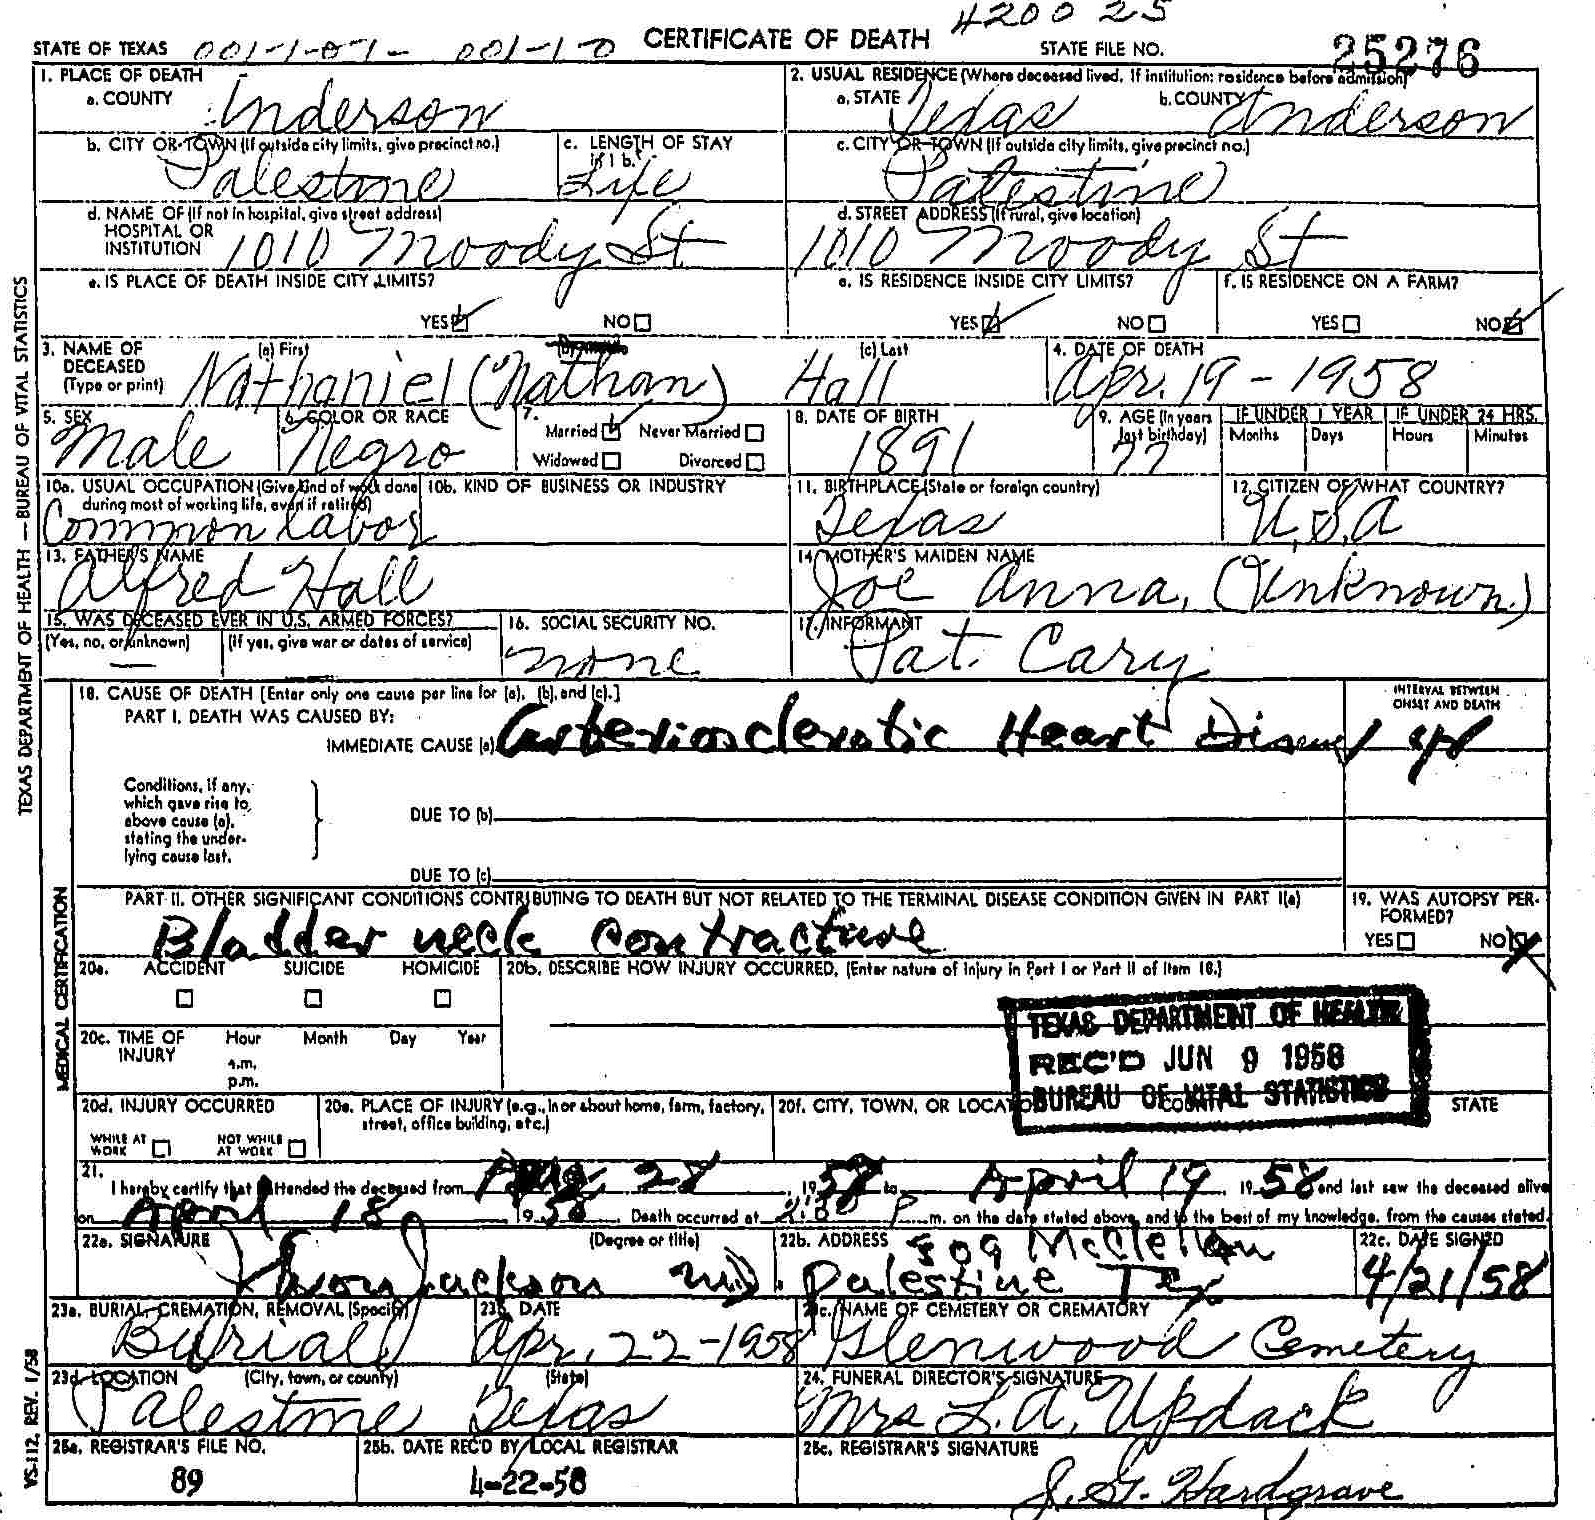 420025
STATE OF TEXAS 001-1-07- 001-1-0 CERTIFICATE OF DEATH STATE FILE NO. 25276
1. PLACE OF DEATH
a. COUNTY Anderson
2. USUAL RESIDENCE (Where deceased lived. If institution: residence before admission)
a. STATE Texas b. COUNTY Anderson
b. CITY OR TOWN (If outside city limits, give precinct no.) Palestine
c. LENGTH OF STAY in 1 b. Life
c. CITY OR TOWN (If outside city limits, give precinct no.) Palestine
d. NAME OF (If not in hospital, give street address) HOSPITAL OR INSTITUTION 1010 Moody St
d. STREET ADDRESS (If rural, give location) 1010 Moody St
e. IS PLACE OF DEATH INSIDE CITY LIMITS?
YES NO
e. IS RESIDENCE INSIDE CITY LIMITS?
YES NO
f. IS RESIDENCE ON A FARM?
YES NO
3. NAME OF DECEASED (Type or print)
(a) First Nathaniel (Nathan) (c) Last Hall
4. DATE OF DEATH Apr. 19 - 1958
5. SEX Male
6. COLOR OR RACE Negro
7. Married Never Married
Widowed Divorced
8. DATE OF BIRTH 1891
9. AGE (In years last birthday) 77
IF UNDER 1 YEAR Months Days
IF UNDER 24 HRS. Hours Minutes
10a. USUAL OCCUPATION (Give kind of work done during most of working life, even if retired) Common labor
10b. KIND OF BUSINESS OR INDUSTRY
11. BIRTHPLACE (State or foreign country) Texas
12. CITIZEN OF WHAT COUNTRY? U.S.A
13. FATHER'S NAME Alfred Hall
14. MOTHER'S MAIDEN NAME Joe Anna, (Unknown.)
15. WAS DECEASED EVER IN U.S. ARMED FORCES?
(Yes, no, or unknown) — (If yes, give war or dates of service)
16. SOCIAL SECURITY NO. none
17. INFORMANT Pat. Cary
MEDICAL CERTIFICATION
18. CAUSE OF DEATH [Enter only one cause per line for (a), (b), and (c).]
PART I. DEATH WAS CAUSED BY:
IMMEDIATE CAUSE (a) Arteriosclerotic Heart Disease
INTERVAL BETWEEN ONSET AND DEATH
Conditions, if any, which gave rise to above cause (a), stating the underlying cause last.
DUE TO (b)
DUE TO (c)
PART II. OTHER SIGNIFICANT CONDITIONS CONTRIBUTING TO DEATH BUT NOT RELATED TO THE TERMINAL DISEASE CONDITION GIVEN IN PART I(a)
Bladder neck contracture
19. WAS AUTOPSY PERFORMED?
YES NO
20a. ACCIDENT SUICIDE HOMICIDE
20b. DESCRIBE HOW INJURY OCCURRED. (Enter nature of injury in Part I or Part II of Item 18.)
20c. TIME OF INJURY Hour Month Day Year
a.m.
p.m.
TEXAS DEPARTMENT OF HEALTH
REC'D JUN 9 1958
BUREAU OF VITAL STATISTICS
20d. INJURY OCCURRED
WHILE AT WORK NOT WHILE AT WORK
20e. PLACE OF INJURY (e.g., in or about home, farm, factory, street, office building, etc.)
20f. CITY, TOWN, OR LOCATION COUNTY STATE
21. I hereby certify that I attended the deceased from 28, 1958 to April 19, 1958 and last saw the deceased alive
on April 18 1958. Death occurred at P. m. on the date stated above, and to the best of my knowledge, from the causes stated.
22a. SIGNATURE (Degree or title) Jackson MD.
22b. ADDRESS 509 McClellan Palestine Tex
22c. DATE SIGNED 4/21/58
23a. BURIAL, CREMATION, REMOVAL (Specify) Burial
23b. DATE Apr. 22-1958
23c. NAME OF CEMETERY OR CREMATORY Glenwood Cemetery
23d. LOCATION (City, town, or county) (State) Palestine Texas
24. FUNERAL DIRECTOR'S SIGNATURE Mrs L. A. Updack
25a. REGISTRAR'S FILE NO. 89
25b. DATE REC'D BY LOCAL REGISTRAR 4-22-58
25c. REGISTRAR'S SIGNATURE J. G. Hardgrave
TEXAS DEPARTMENT OF HEALTH — BUREAU OF VITAL STATISTICS
VS-112, REV. 1/58